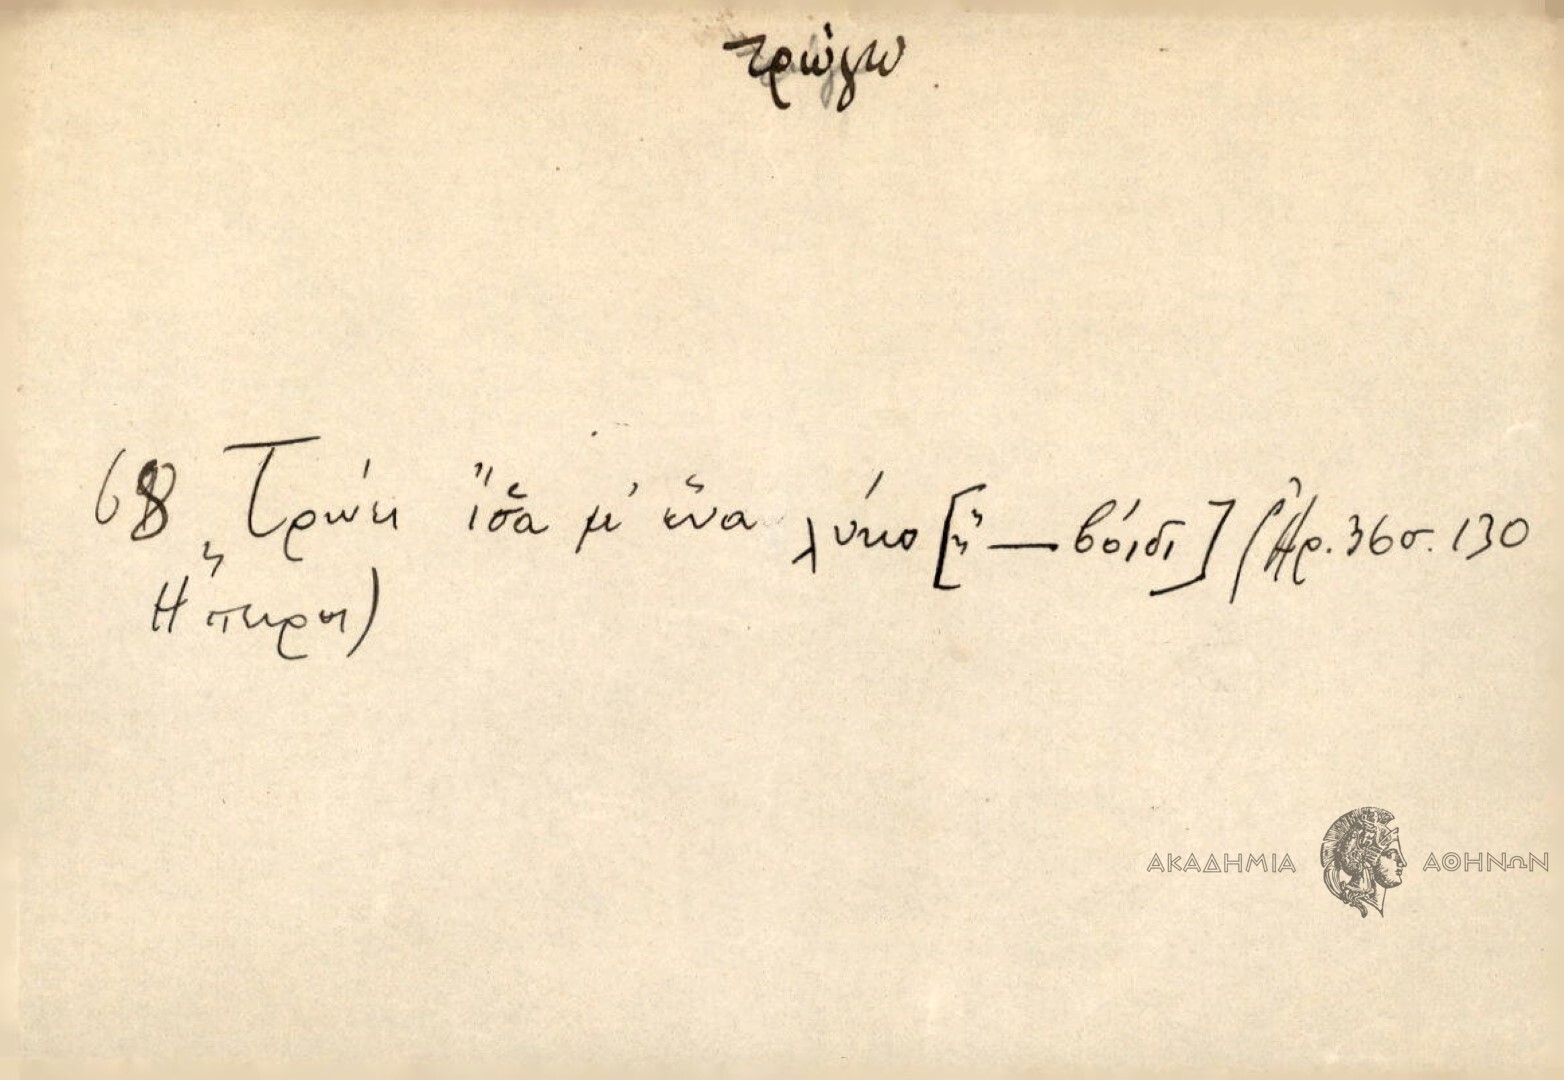 τρώγω
68 Τρώει ἴσα μ' ἕνα λύκο [ἤ — βόιδι] (Ἀρ. 36 σ. 130
Ἤπειρος)
ΑΚΑΔΗΜΙΑ ΑΘΗΝΩΝ